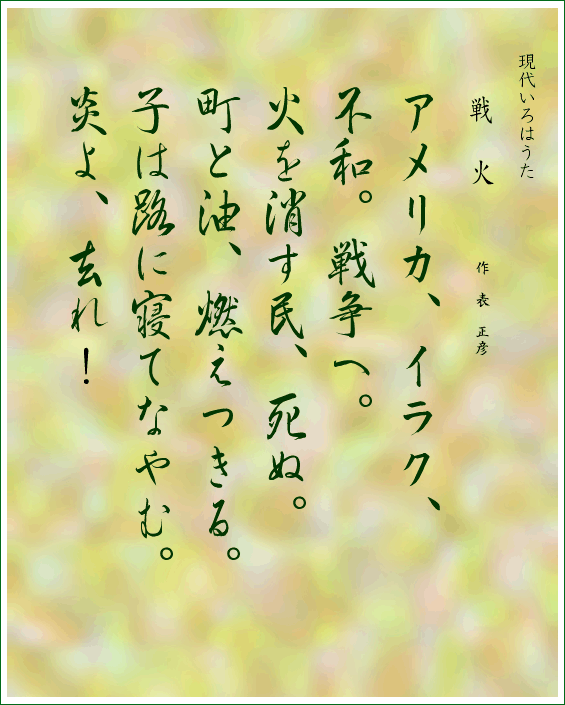 現代いろはうた
戦火
作 表 正彦
アメリカ、イラク、
不和。戦争へ。
火を消す民、死ぬ。
町と油、燃えつきる。
子は路に寝てなやむ。
炎よ、去れ！